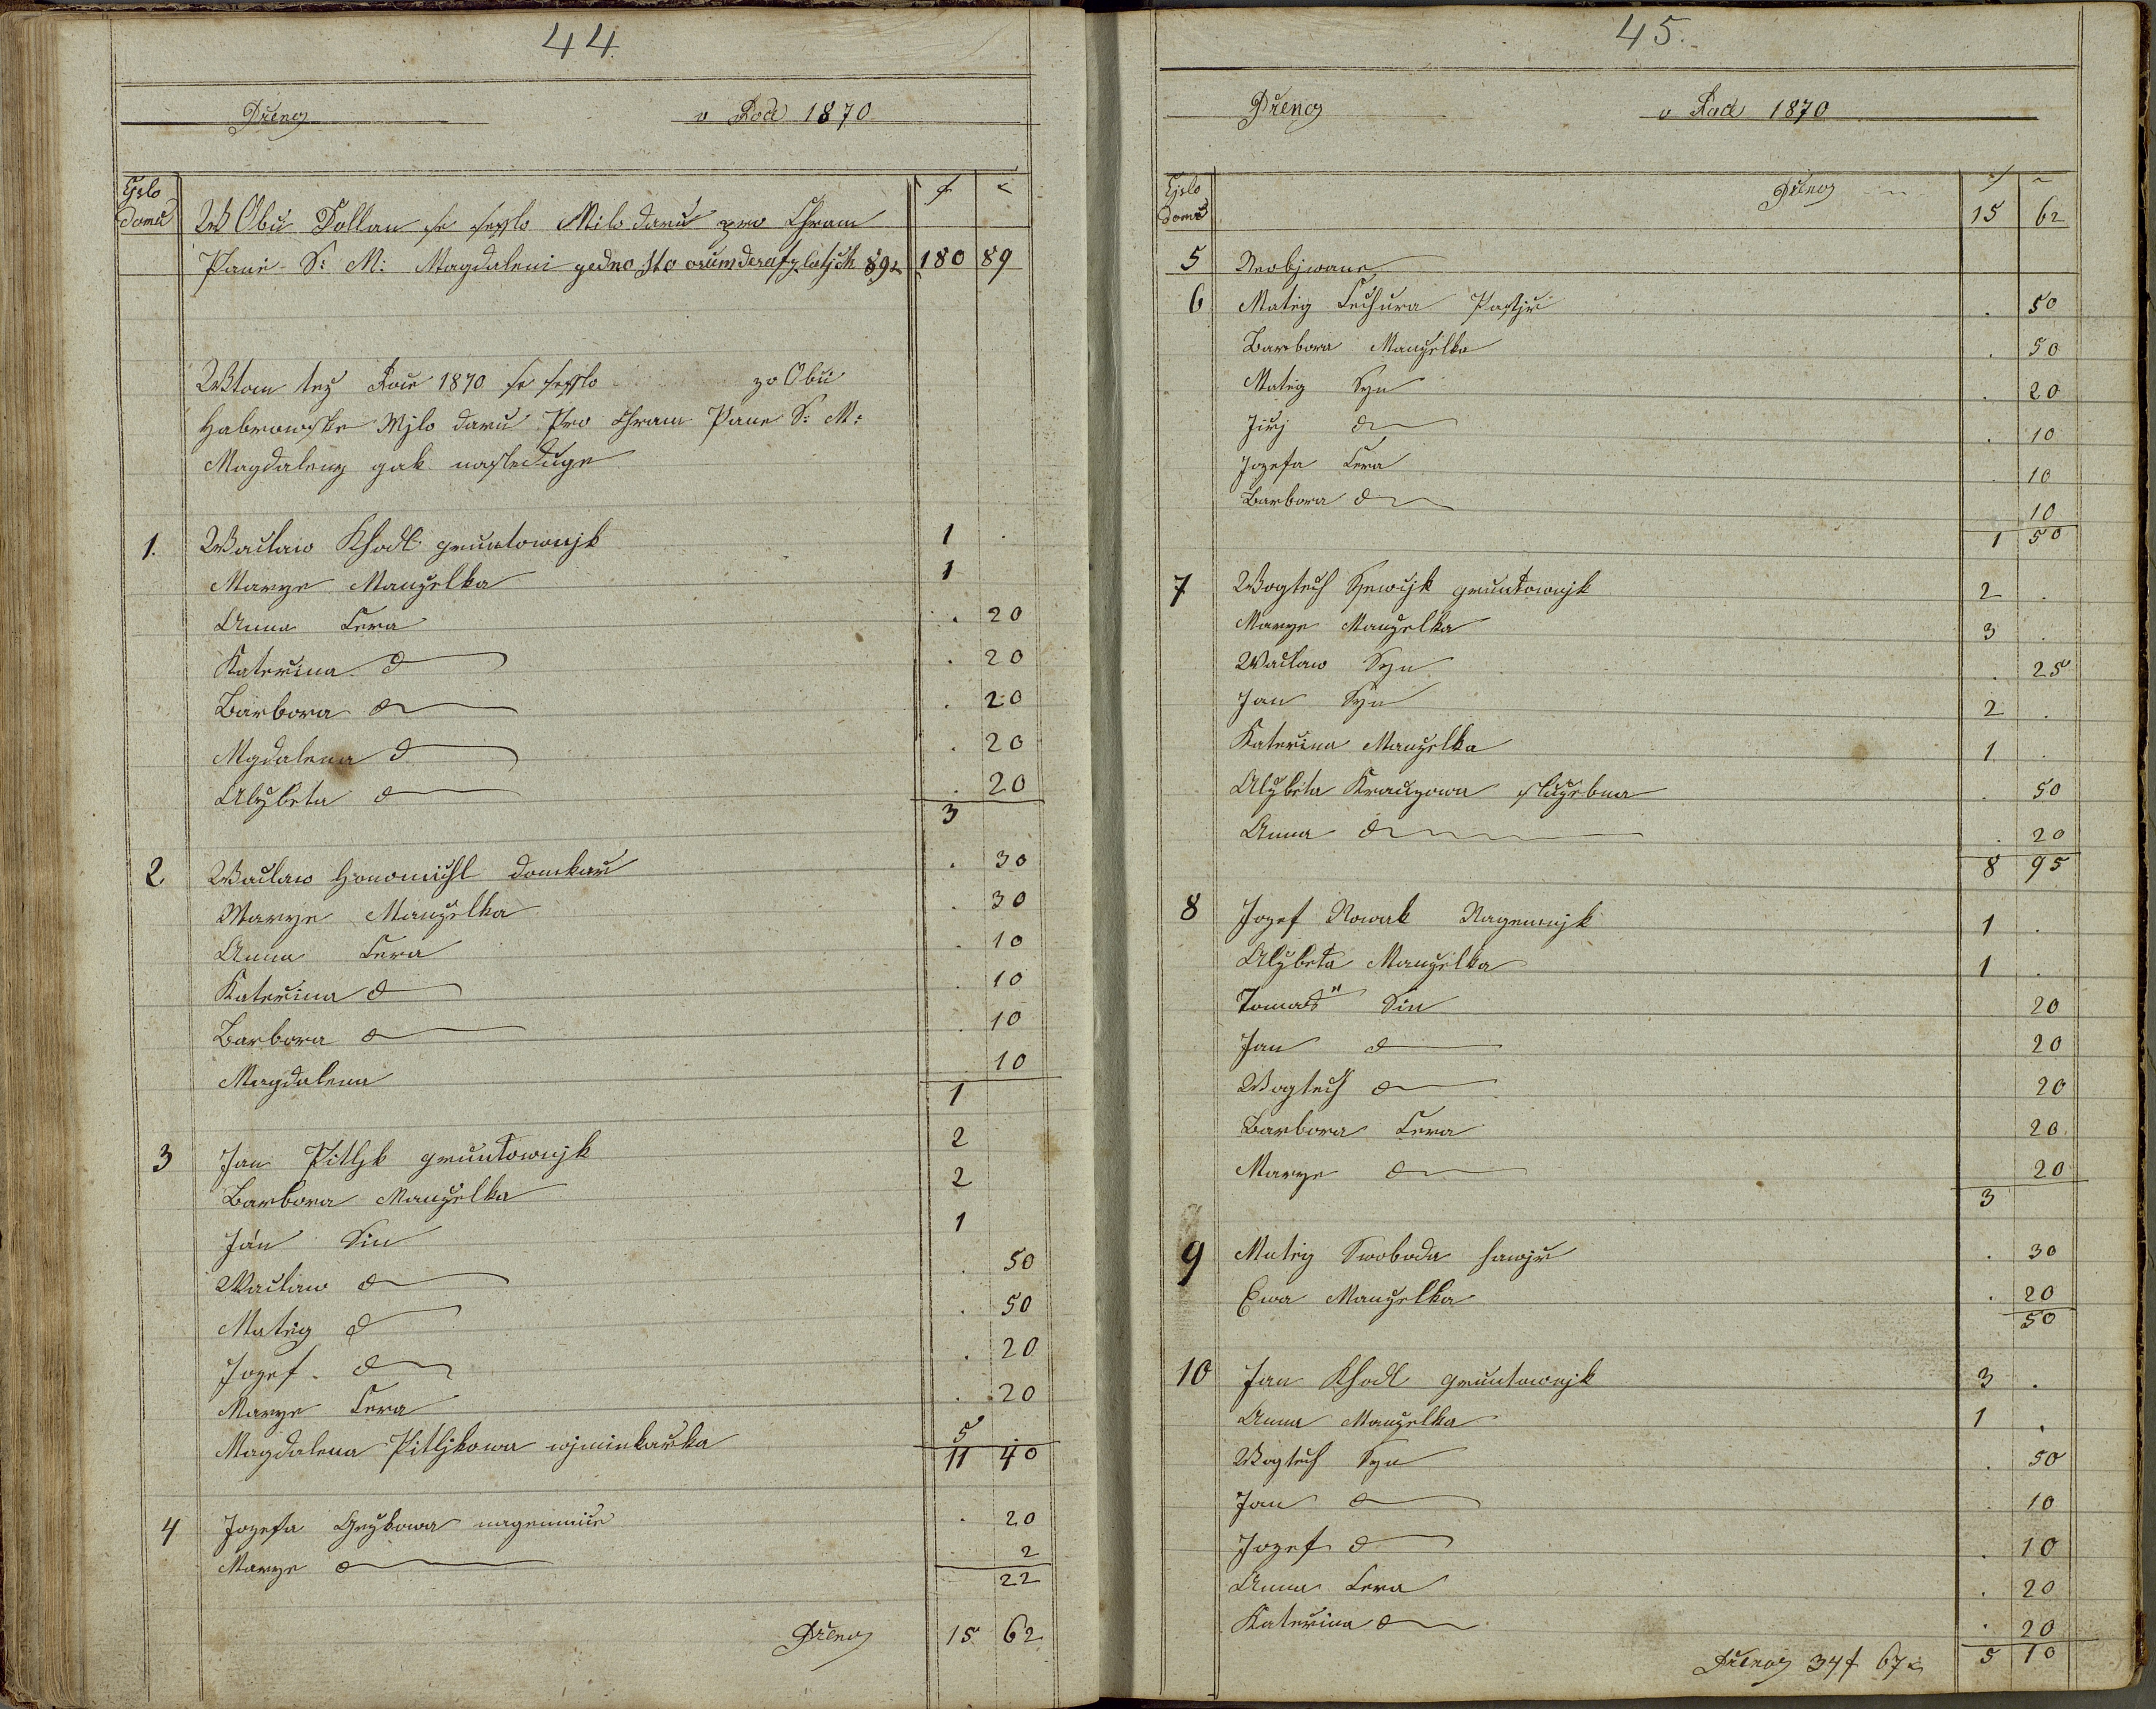 44
Přenos v Roce 1870
Cjslo domu f c
W Obci Dollan se sesslo Milo daru pro Chram
Pane S: M: Magdaleni gedno sto osumdesat zlatjch 89c 180 89
W tom tez Roce 1870 se sesslo ze Obci
Habrowske Mjlo daru Pro Chram Pane S: M:
Magdaleny gak nasleduge
1. Waclaw Khodl gruntownjk 1 .
Marye Manželka 1
Anna Cera . 20
Kateřina d . 20
Barbora d . 20
Mgdalena d . 20
Alžbeta d . 20
3
2 Waclaw Honomichl domkař . 30
Marye Manželka . 30
Anna Cera . 10
Kateřina d . 10
Barbora d . 10
Magdalena . 10
1
3 Jan Pitljk gruntownjk 2
Barbora Manželka 2
Ján Sin 1
Waclaw d . 50
Matěg d . 50
Jozef d . 20
Marye Cera . 20
Magdalena Pitljkowa wjminkařka 5
11 40
4 Jozefa nagemnice . 20
Marye d 2
22
Přenos 15 62
45.
Přenos v Roce 1870
Cjslo domu f c
Přenos 15 62
5 Neobjwane
6 Matěg Cechura Pastjř . 50
Barbora Manželka . 50
Matěg Syn . 20
Jiřj d . 10
Jozefa Cera . 10
Barbora d 10
1 50
7 Wogtech gruntownjk 2 .
Marye Manželka 3 .
Waclaw Syn . 25
Jan Syn 2 .
Kateřina Manželka 1 .
Alžbeta Krauzowa služebna . 50
Anna d . 20
8 95
8 Jozef Nowak Nagemnjk 1 .
Alžbeta Manželka 1 .
Tomaš Sin 20
Jan d 20
Wogtech d 20
Barbora Cera 20
Marye d 20
3
9 Matěg Swoboda hawjř . 30
Ewa Manželka . 20
50
10 Jan Khodl gruntownjk 3 .
Anna Manželka 1 .
Wogtech Syn . 50
Jan d . 10
Jozef d . 10
Anna Cera . 20
Kateřina d . 20
5 10
Přenos 34f 67c